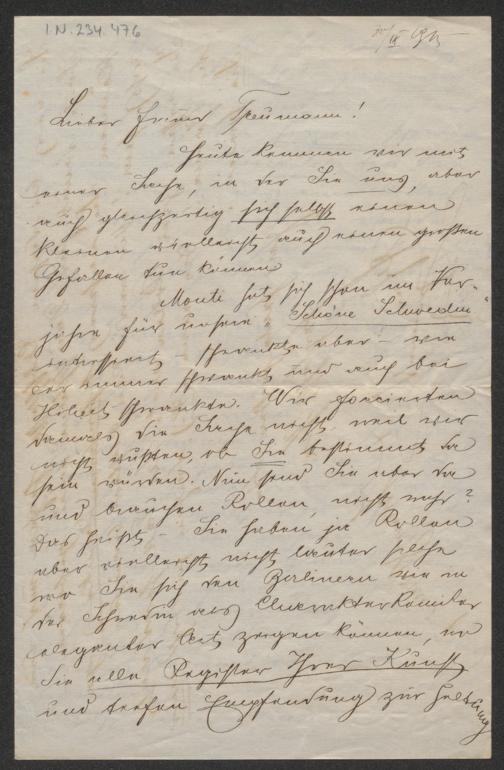 I.N. 234.476
Lieber Freund Treumann!
Heute kommen wir mit
einer Sache, in der Sie uns, aber
auch gleichzeitig sich selbst einen
kleinen vielleicht auch einen großen
Gefallen tun können
Monti hat sich schon im Vor-
jahre für unsere „Schöne Schwedin"
interessiert – schwankte aber – wie
er immer schwankt und auch bei
schwankte. Wir forcierten
damals die Sache nicht weil wir
nicht wußten, ob Sie bestimmt da
sein würden. Nun sind Sie aber da
und brauchen Rollen, nicht wahr?
Das heißt – Sie haben ja Rollen
aber vielleicht nicht lauter solche
wo Sie sich den Berlinern wie in
der Schwedin als Charakterkomiker
eleganter Art zeigen können, wo
Sie alle Register Ihrer Kunst
und tiefen Empfindung zur Geltung